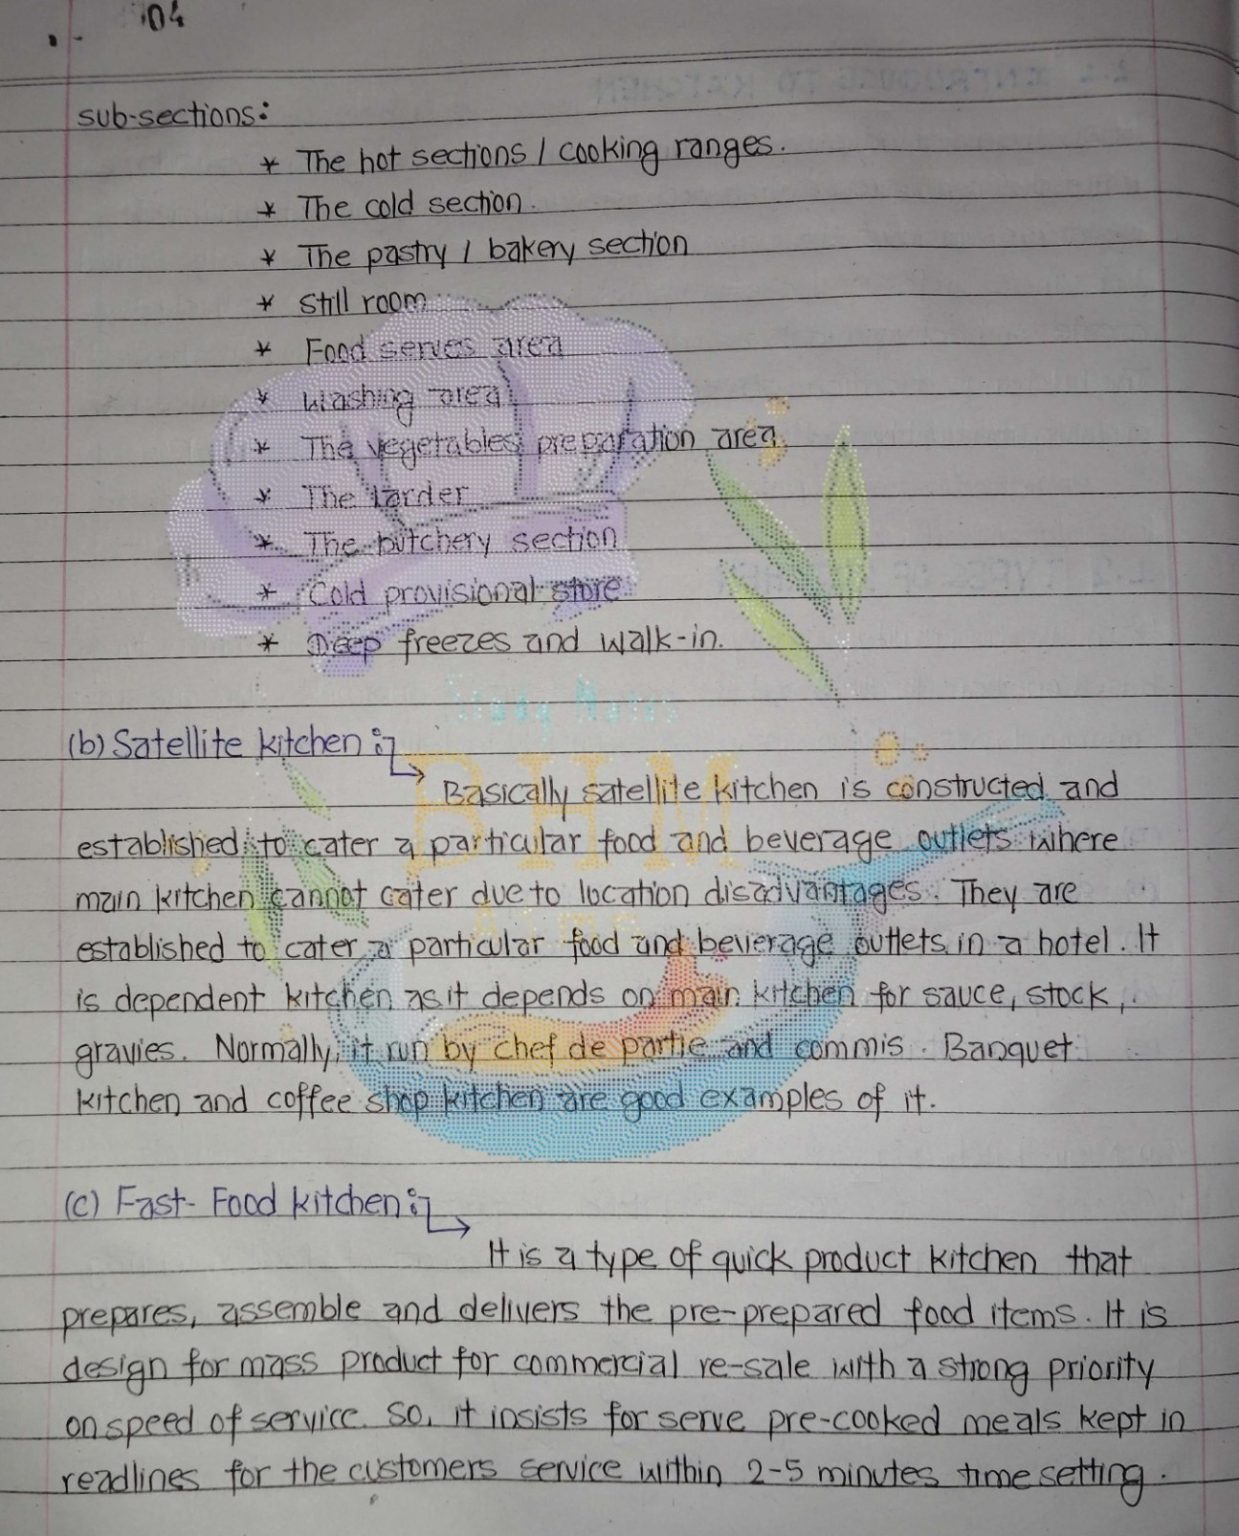 04
sub-sections:
* The hot sections / cooking ranges.
* The cold section.
* The pastry / bakery section
* Still room
* Food serves area
* Washing area
* The vegetables preparation area
* The larder
* The butchery section
* Cold provisional store
* Deep freezes and walk-in.
(b) Satellite kitchen:
Basically satellite kitchen is constructed and
established to cater a particular food and beverage outlets where
main kitchen cannot cater due to location disadvantages. They are
established to cater a particular food and beverage outlets in a hotel. It
is dependent kitchen as it depends on main kitchen for sauce, stock,
gravies. Normally, it run by chef de partie and commis. Banquet
kitchen and coffee shop kitchen are good examples of it.
(c) Fast-Food kitchen:
It is a type of quick product kitchen that
prepares, assemble and delivers the pre-prepared food items. It is
design for mass product for commercial re-sale with a strong priority
on speed of service. So, it insists for serve pre-cooked meals kept in
readlines for the customers service within 2-5 minutes time setting.
BHM